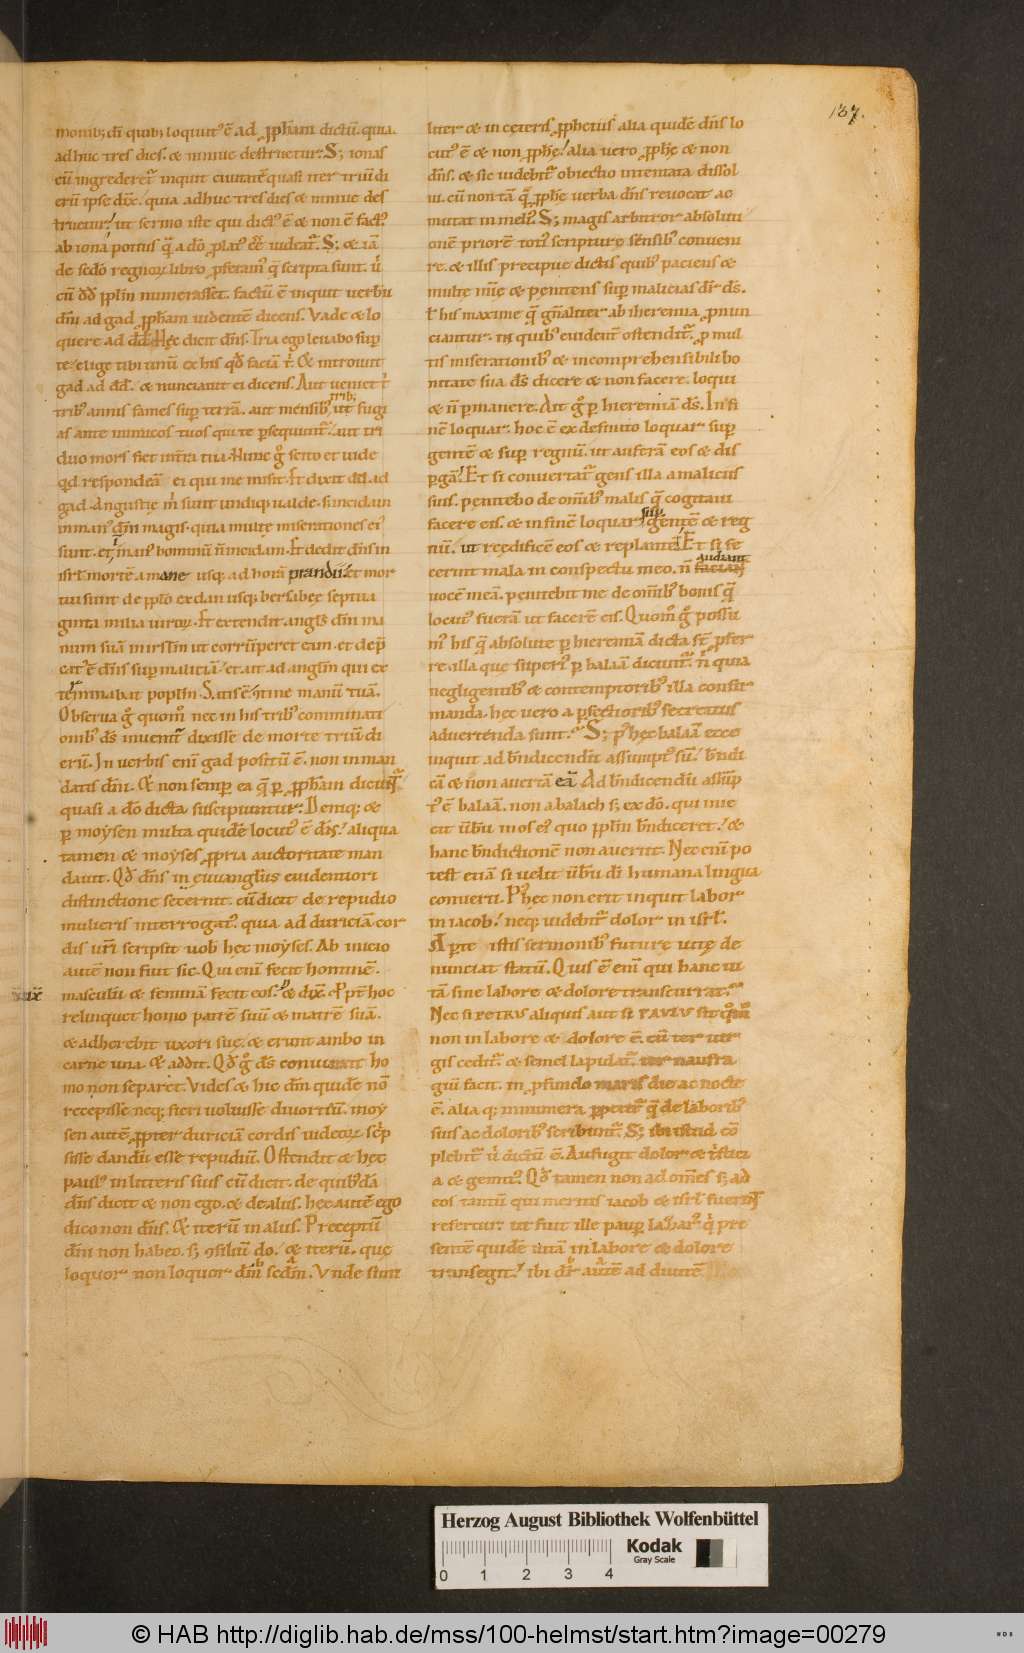 137.
monib; di quib; loquiť ē ad ꝓpham dictū. quia.
adhuc tres dies. & ninue destruetur. S; ionas
cū ingrederet inquit ciuitatē quasi iter triū di
erū ipse dix. quia adhuc tres dies & ninue des
truetur. ut sermo iste qui dict' ē & non ē fact'.
ab iona potius ꝗ̄ a dō plat' eē uideat. S; & iā
cū dd pplm numerasset. factū ē inquit uerbū
dn̄i ad gad ꝓpham uidentē dicens. Vade & lo
quere ad dd. Hęc dicit dn̄s. Tria ego leuabo sup
te. elige tibi unū ex his qd faciā t. Et introiuit
gad ad dd. & nunciauit ei dicens. Aut ueniet t
trib; annis fames sup terrā. aut mensib; trib; ut fugi
as ante inimicos tuos qui te psequunt. aut tri
duo mors fiet in tra tua. Nunc g scito et uide
qd respondeā ei qui me misit. Et dixit dd. ad
gad. Angustię m sunt undiq; ualde. s; incidam
in man' dn̄i magis. quia multę miserationes ei'
sunt. et in man' hominū n̄ incidam. Et dedit dn̄s in
isrl mortē a mane usq; ad horā prandii. et mor
tui sunt de pplo ex dan usq; bersabeę septua
ginta milia uiror. Et extendit angls dn̄i ma
num suā in irslm ut corrūperet eam. et dep
cat' ē dn̄s sup maliciā. et ait ad anglm qui ex
terminabat poplm. S. tis ē ꝯtine manū tuā.
Obserua g quom nec in his trib; comminati
onib; ds inuenit dixisse de morte triū di
erū. In uerbis eni gad positū ē. non in man
datis dn̄i. Et non semp ea ꝗ p ꝓpham dicunt
quasi a dō dicta suscipiuntur. Deniq; &
p moysen multa quidē locut' ē dn̄s. aliqua
tamen & moyses ꝓpria auctoritate man
dauit. Qd dn̄s in euuangliis euidentiori
distinctione secernit. cū dicit de repudio
mulieris interrogat'. quia ad duriciā cor
dis uri scripsit uob hęc moyses. Ab inicio
autē non fuit sic. Qui eni fecit hominē.
masculū & feminā fecit eos. & dix. Ppt hoc
relinquet homo patrē suū & matrē suā.
& adherebit uxori suę. & erunt ambo in
carne una. Et addit. Qd g ds coniunxit ho
mo non separet. Vides & hic dn̄m quidē nō
recepisse neq; fieri uoluisse diuortiū. moy
sen autē ꝓpter duriciā cordis uideor scp
sisse dandū esse repudiū. Ostendit & hęc
paul' in litteris suis cū dicit. de quib'dā
dn̄s dicit & non ego. & de aliis. hęc autē ego
dico non dn̄s. Et iterū in aliis. Preceptū
dn̄i non habeo. s; ꝯsiliū do. & iterū. quę
loquor non loquor dm scdm. Vnde sunt
liter & in ceteris ꝓphetiis alia quidē dn̄s lo
cut' ē & non ꝓphę. alia uero ꝓphę & non
dn̄s. & sic uidebit obiectio intentata dissol
ui. cū non tā ꝗ ꝓphę uerba dn̄s reuocat ac
mutat in meli'. S; magis arbitror absoluti
onē priorē toti' scripturę sensib; conueni
re. & illis precipue dictis quib; paciens &
multę mię & penitens sup malicias dr ds.
t his maxime ꝗ gn̄aliter ab iheremia ꝓnun
ciantur. in quib; euident ostendit. p mul
tis miserationib; & incomprehensibili bo
nitate sua ds dicere & non facere. loqui
& n̄ pmanere. Ait g p hieremiā ds. In fi
nē loquar. hoc ē ex definito loquar sup
gentē & sup regnū. ut auferā eos & dis
pgā. Et si conuertat gens illa a maliciis
suis. penitebo de omib; malis ꝗ cogitaui
facere eis. & in finē loquar sup gentē & reg
nū. ut reędificē eos & replantē. Et si fe
cerint mala in conspectu meo. n̄ audiant
uocē meā. penitebit me de omib; bonis ꝗ
locut' fuerā ut facerē eis. Quom g possu
m' his ꝗ absolute p hieremiā dicta st pfer
re. illa quę superi' p balaā dicunt. n quia
negligentib; & contemptorib; illa confir
manda. hęc uero a pfectiorib; secretius
aduertenda sunt. S; p' hęc balaā ecce
inquit ad bn̄dicendū assumpt' sū. bn̄di
cā & non auertā eā. Ad bn̄dicendū assup
t' ē balaā. non a balach s; ex dō. qui inie
cit ubū in os ei' quo pplm bn̄diceret. &
hanc bn̄dictionē non auertit. Nec eni po
test etiā si uelit ubū di humana lingua
conuerti. P' hęc non erit inquit labor
in iacob. neq; uidebit dolor in isrl.
Apte istis sermonib; futurę uitę de
nunciat statū. Quis ē eni qui hanc ui
tā sine labore & dolore transcurrat.
Nec si PETRUS aliquis aut si PAVLVS sit
non in labore & dolore ē. cū ter uir
gis cedit. & semel lapidat. ter naufra
giū facit. in pfundo maris die ac nocte
ē. alia q; innumera ppetit ꝗ de laborib;
suis ac dolorib; scribunt. S; sin istud cō
plebit ubi dictū ē. Aufugit dolor & tristici
a & gemit'. Qd tamen non ad om̄es s; ad
eos tantū qui meritis iacob & isrl fuerint
refertur. ut fuit ille paup lazar' qui pre
sentē quidē uitā in labore & dolore
transegit. ibi dr autē ad diuitē
xix
Herzog August Bibliothek Wolfenbüttel
0 1 2 3 4
Kodak
Gray Scale
© HAB http://diglib.hab.de/mss/100-helmst/start.htm?image=00279